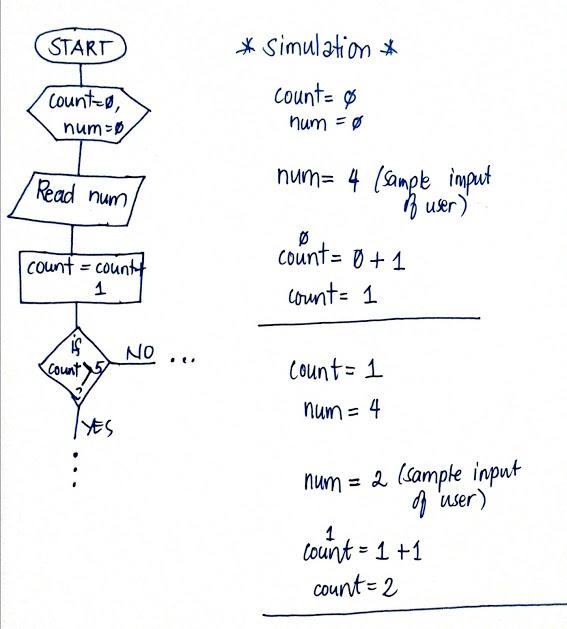 START
count=0,
num=0
Read num
count = count+
1
if
count >5
?
NO ...
YES
* simulation *
count= 0
num = 0
num= 4 (sample input
of user)
0
count= 0+1
count= 1
count= 1
num = 4
num = 2 (sample input
of user)
1
count = 1+1
count=2